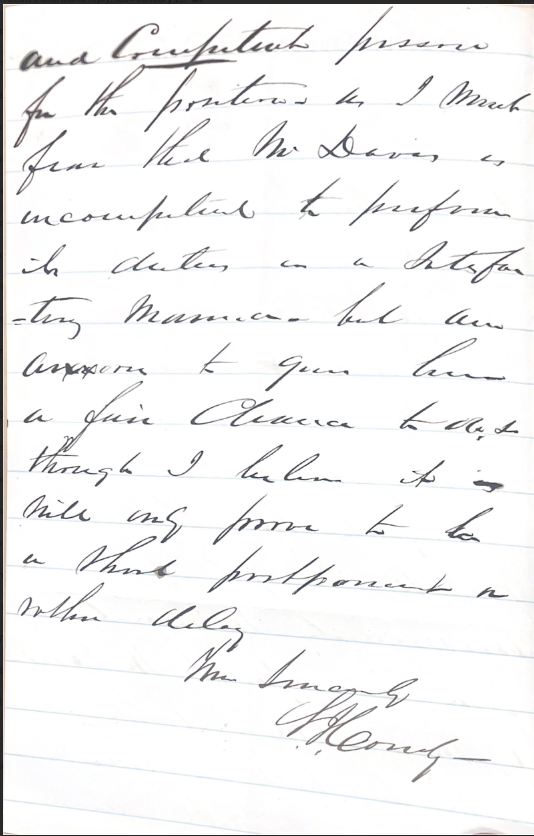 and Competent person
for the position as I much
fear that Mr Davis is
incompetent to perform
its duties in a Satisfac
=tory Manner but am
anxious to give him
a fair Chance to do so
though I believe it is
will only prove to be
a short postponement or
rather delay
Sincerely